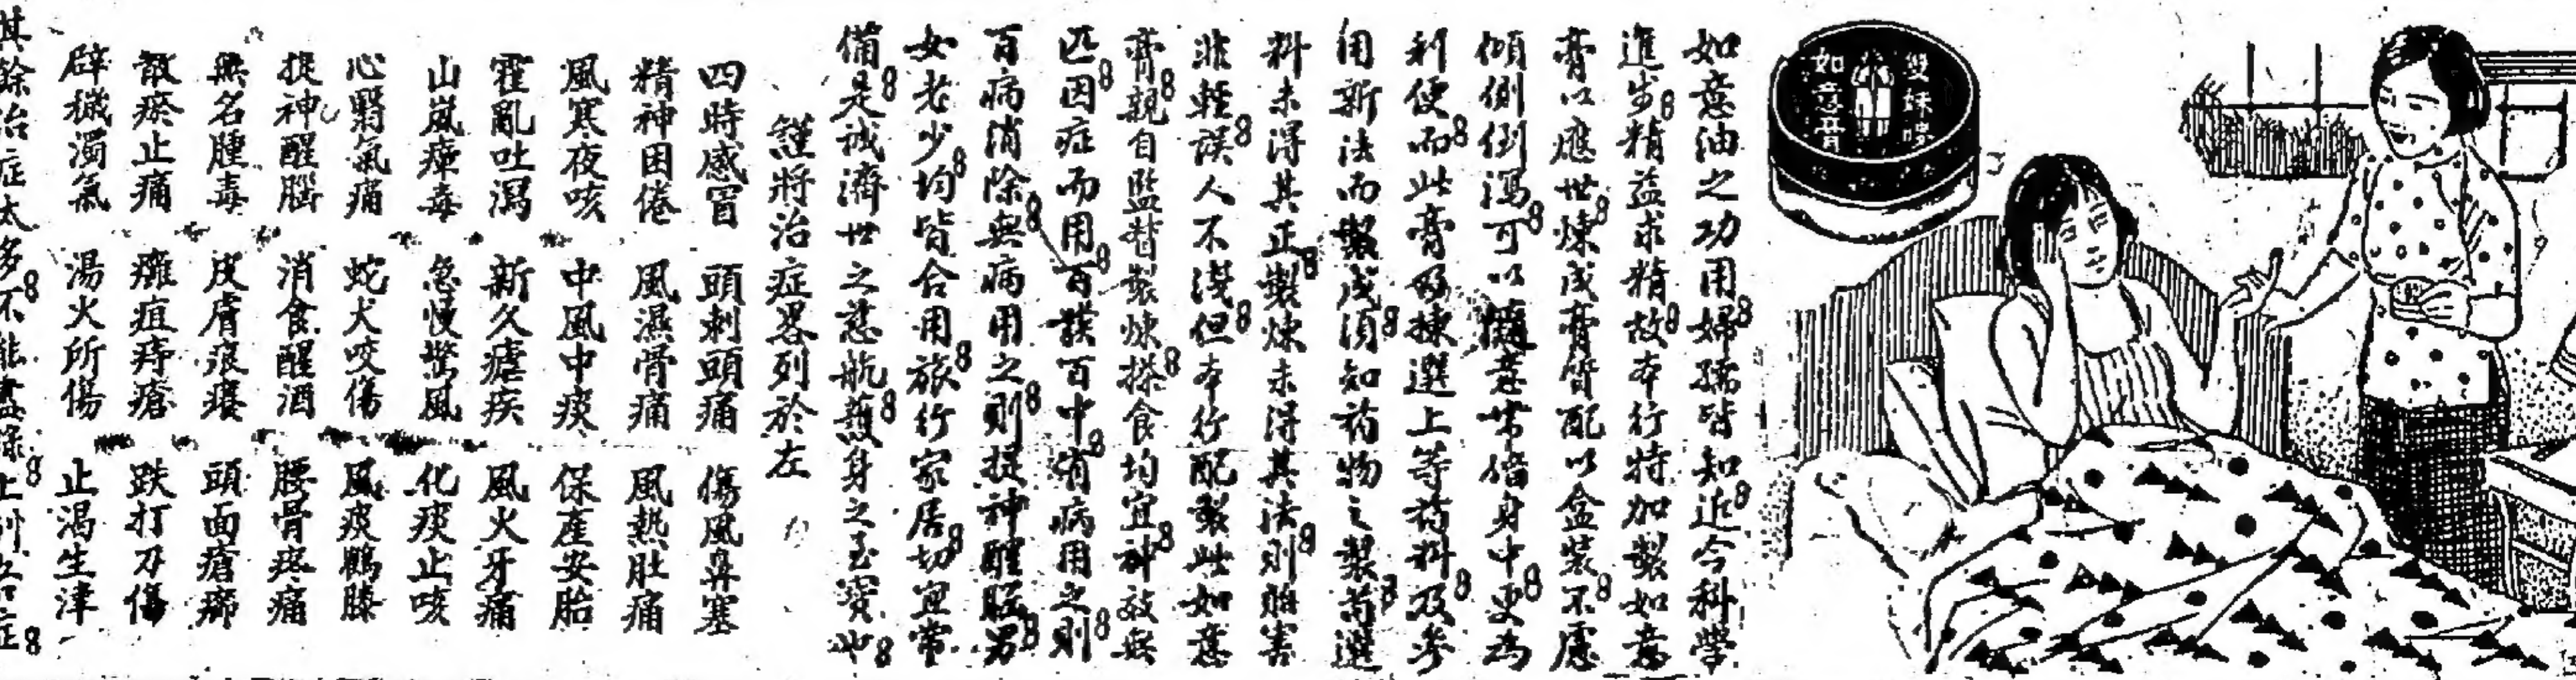 雙妹嘜
如意膏
如意油之功用婦孺皆知近今科學
進步精益求精故本行特加製如意
膏以應世煉成膏質配以盒裝不慮
傾側倒瀉可以隨意帶備身中更為
利便而此膏乃揀選上等葯料及參
用新法而製成須知葯物之製苟選
料未得其正製煉未得其法則貽害
非輕誤人不淺但本行配製此如意
膏親自監督製煉搽食均宜神效無
匹因症而用百發百中有病用之則
百病消除無病用之則提神醒腦男
女老少均皆合用旅行家居切宜常
備是誠濟世之慈航護身之至寶也
謹將治症畧列於左
四時感冒 頭刺頭痛 傷風鼻塞
精神困倦 風濕骨痛 風熱肚痛
風寒夜咳 中風中痰 保產安胎
霍亂吐瀉 新久瘧疾 風火牙痛
山嵐瘴毒 急慢驚風 化痰止咳
心翳氣痛 蛇犬咬傷 風痰鶴膝
提神醒腦 消食醒酒 腰骨疼痛
無名腫毒 皮膚痕癢 頭面瘡癤
散瘀止痛 癰疽痔瘡 跌打刀傷
辟穢濁氣 湯火所傷 止渴生津
其餘治症太多不能盡錄上列各症